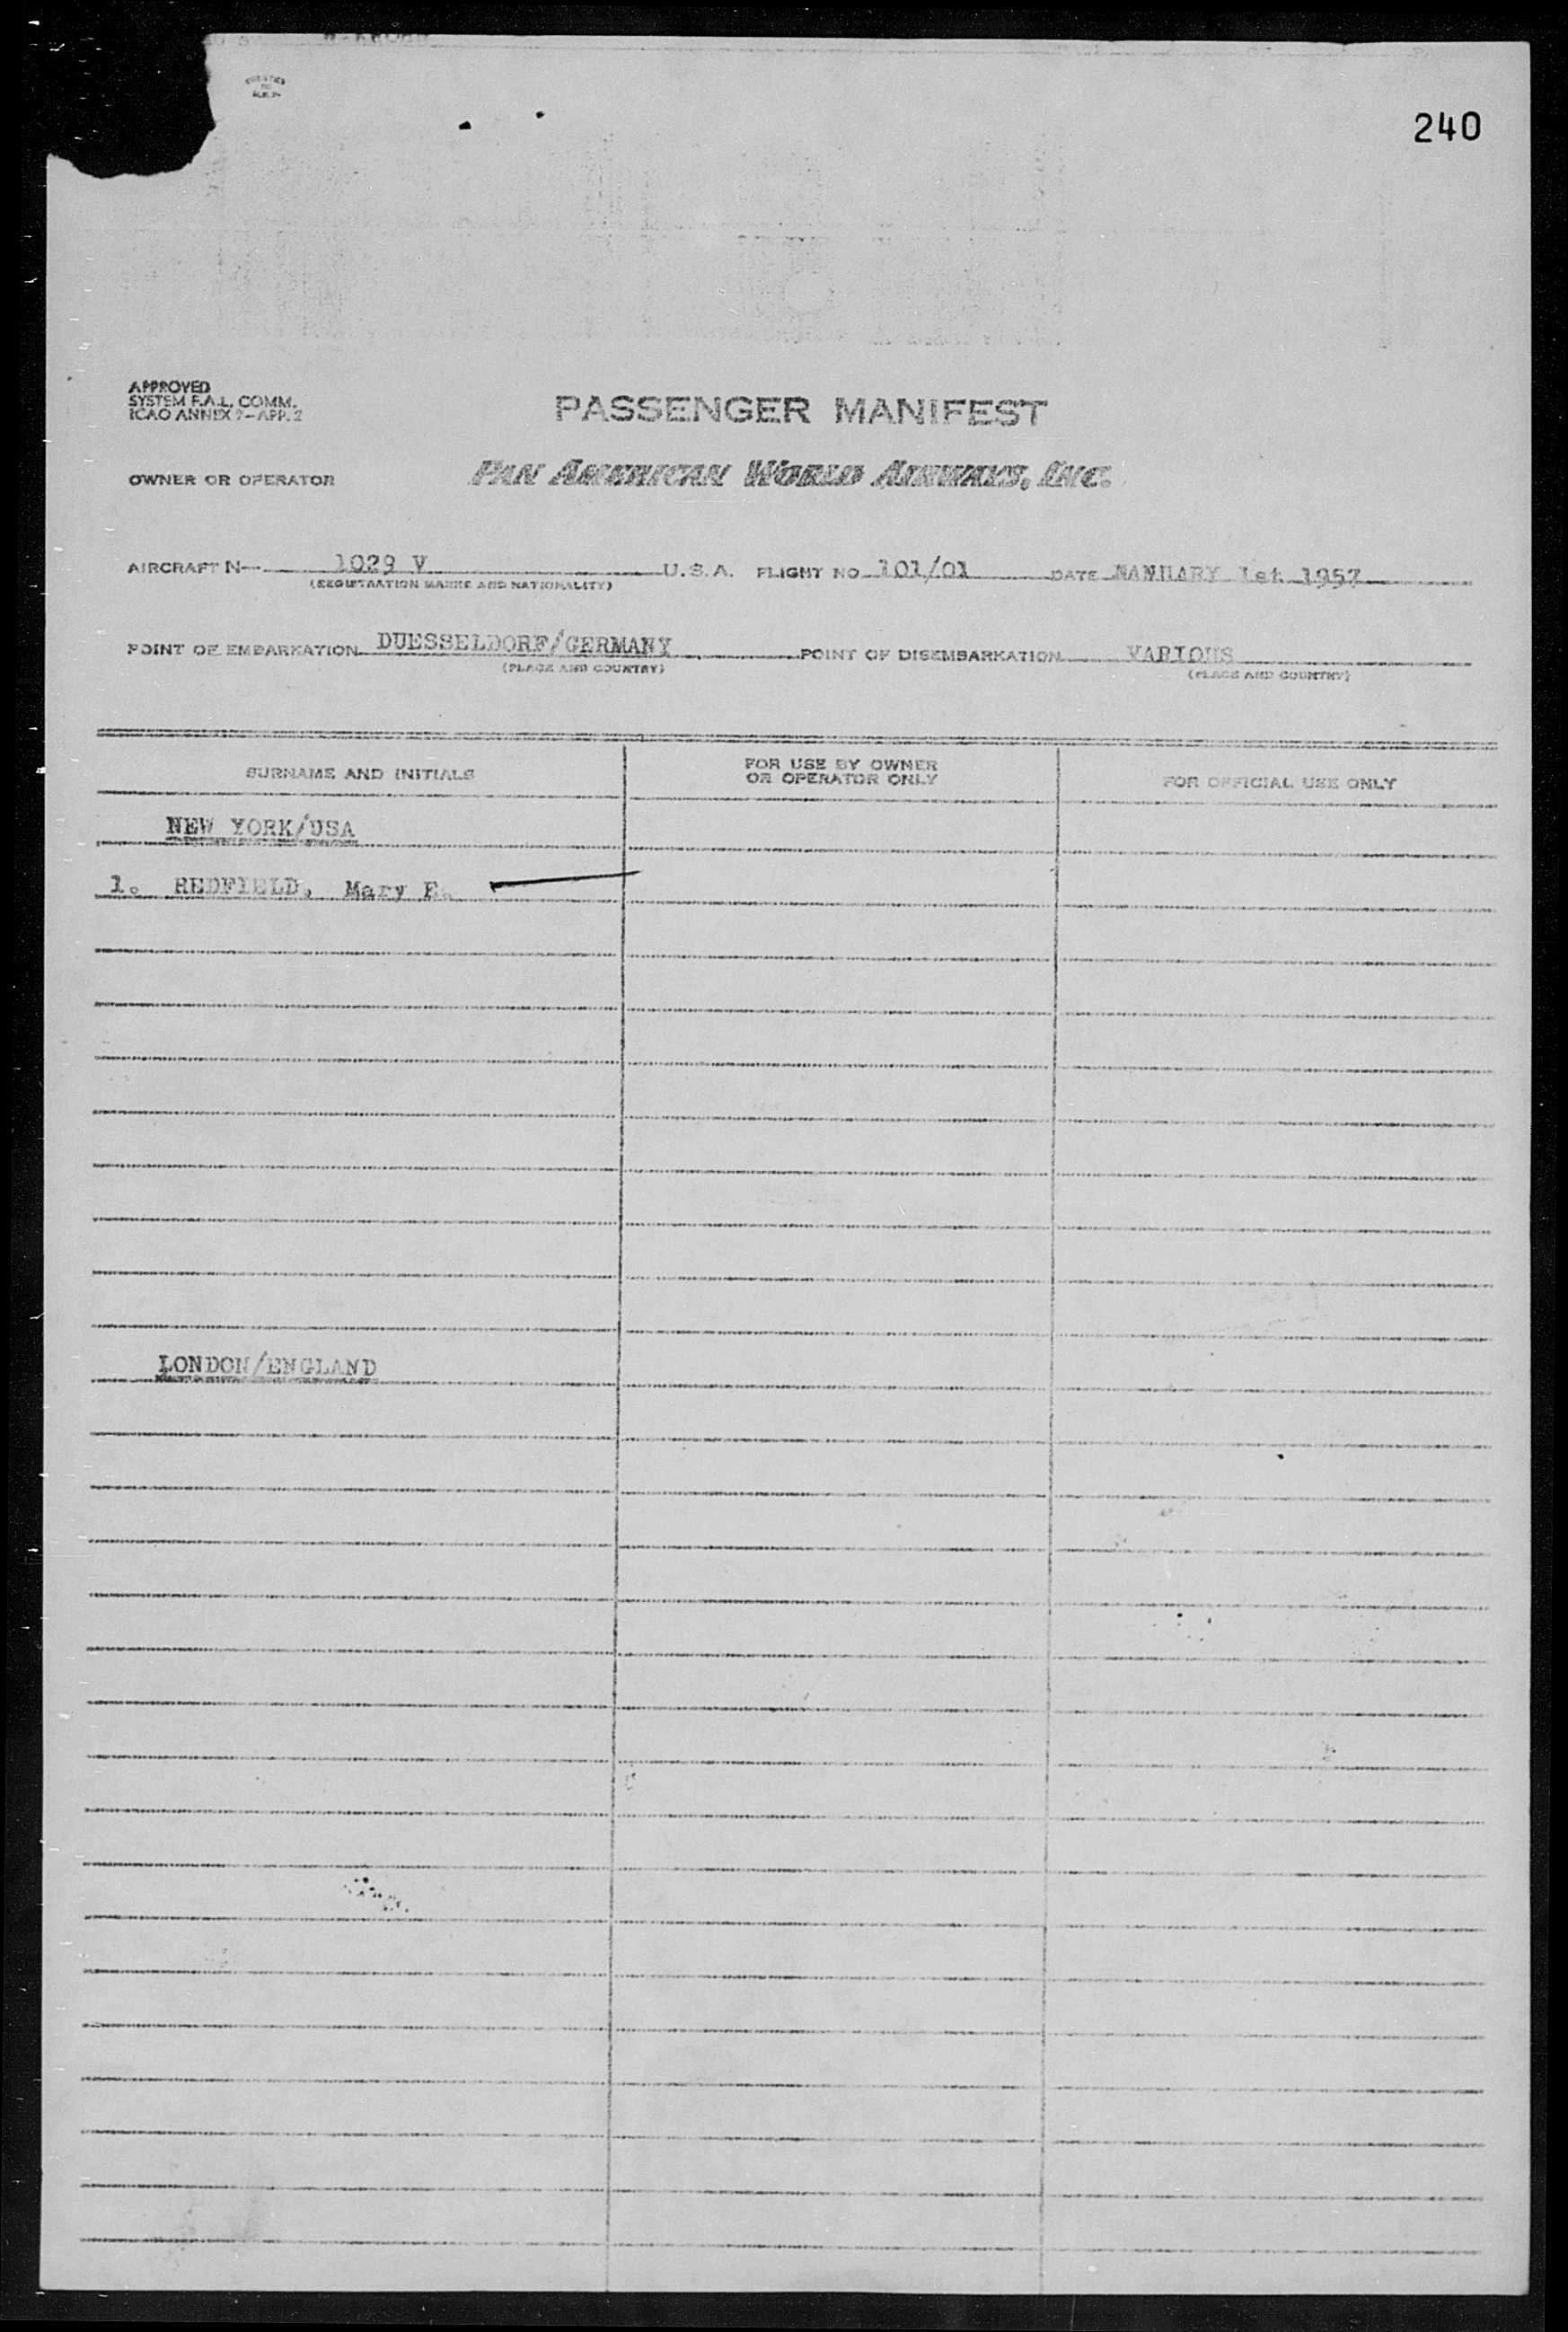 240
APPROVED
SYSTEM F.A.L. COMM.
ICAO ANNEX 9-APP. 2
PASSENGER MANIFEST
OWNER OR OPERATOR PAN AMERICAN WORLD AIRWAYS, INC.
AIRCRAFT N- 1029 V U.S.A. FLIGHT NO 101/01 DATE NANUARY 1st 1957
(REGISTRATION MARKS AND NATIONALITY)
POINT OF EMBARKATION DUESSELDORF/GERMANY POINT OF DISEMBARKATION VARIOUS
(PLACE AND COUNTRY) (PLACE AND COUNTRY)
SURNAME AND INITIALS
FOR USE BY OWNER
OR OPERATOR ONLY
FOR OFFICIAL USE ONLY
NEW YORK/USA
1. REDFIELD, Mary E.
LONDON/ENGLAND